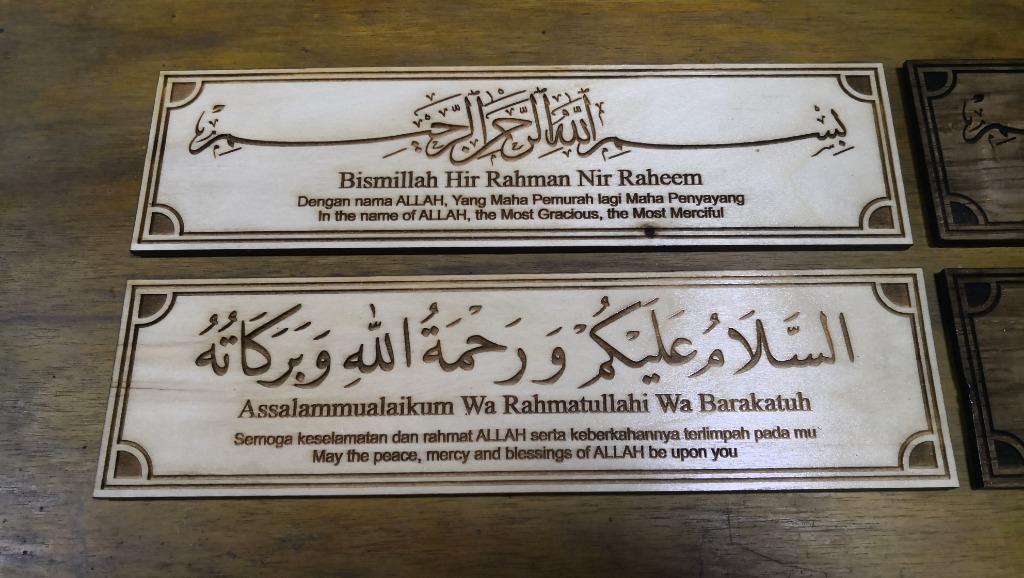 بِسْمِ اللهِ الرَّحْمٰنِ الرَّحِيمِ
Bismillah Hir Rahman Nir Raheem
Dengan nama ALLAH, Yang Maha Pemurah lagi Maha Penyayang
In the name of ALLAH, the Most Gracious, the Most Merciful
السَّلَامُ عَلَيْكُمْ وَرَحْمَةُ اللهِ وَبَرَكَاتُهُ
Assalammualaikum Wa Rahmatullahi Wa Barakatuh
Semoga keselamatan dan rahmat ALLAH serta keberkahannya terlimpah pada mu
May the peace, mercy and blessings of ALLAH be upon you